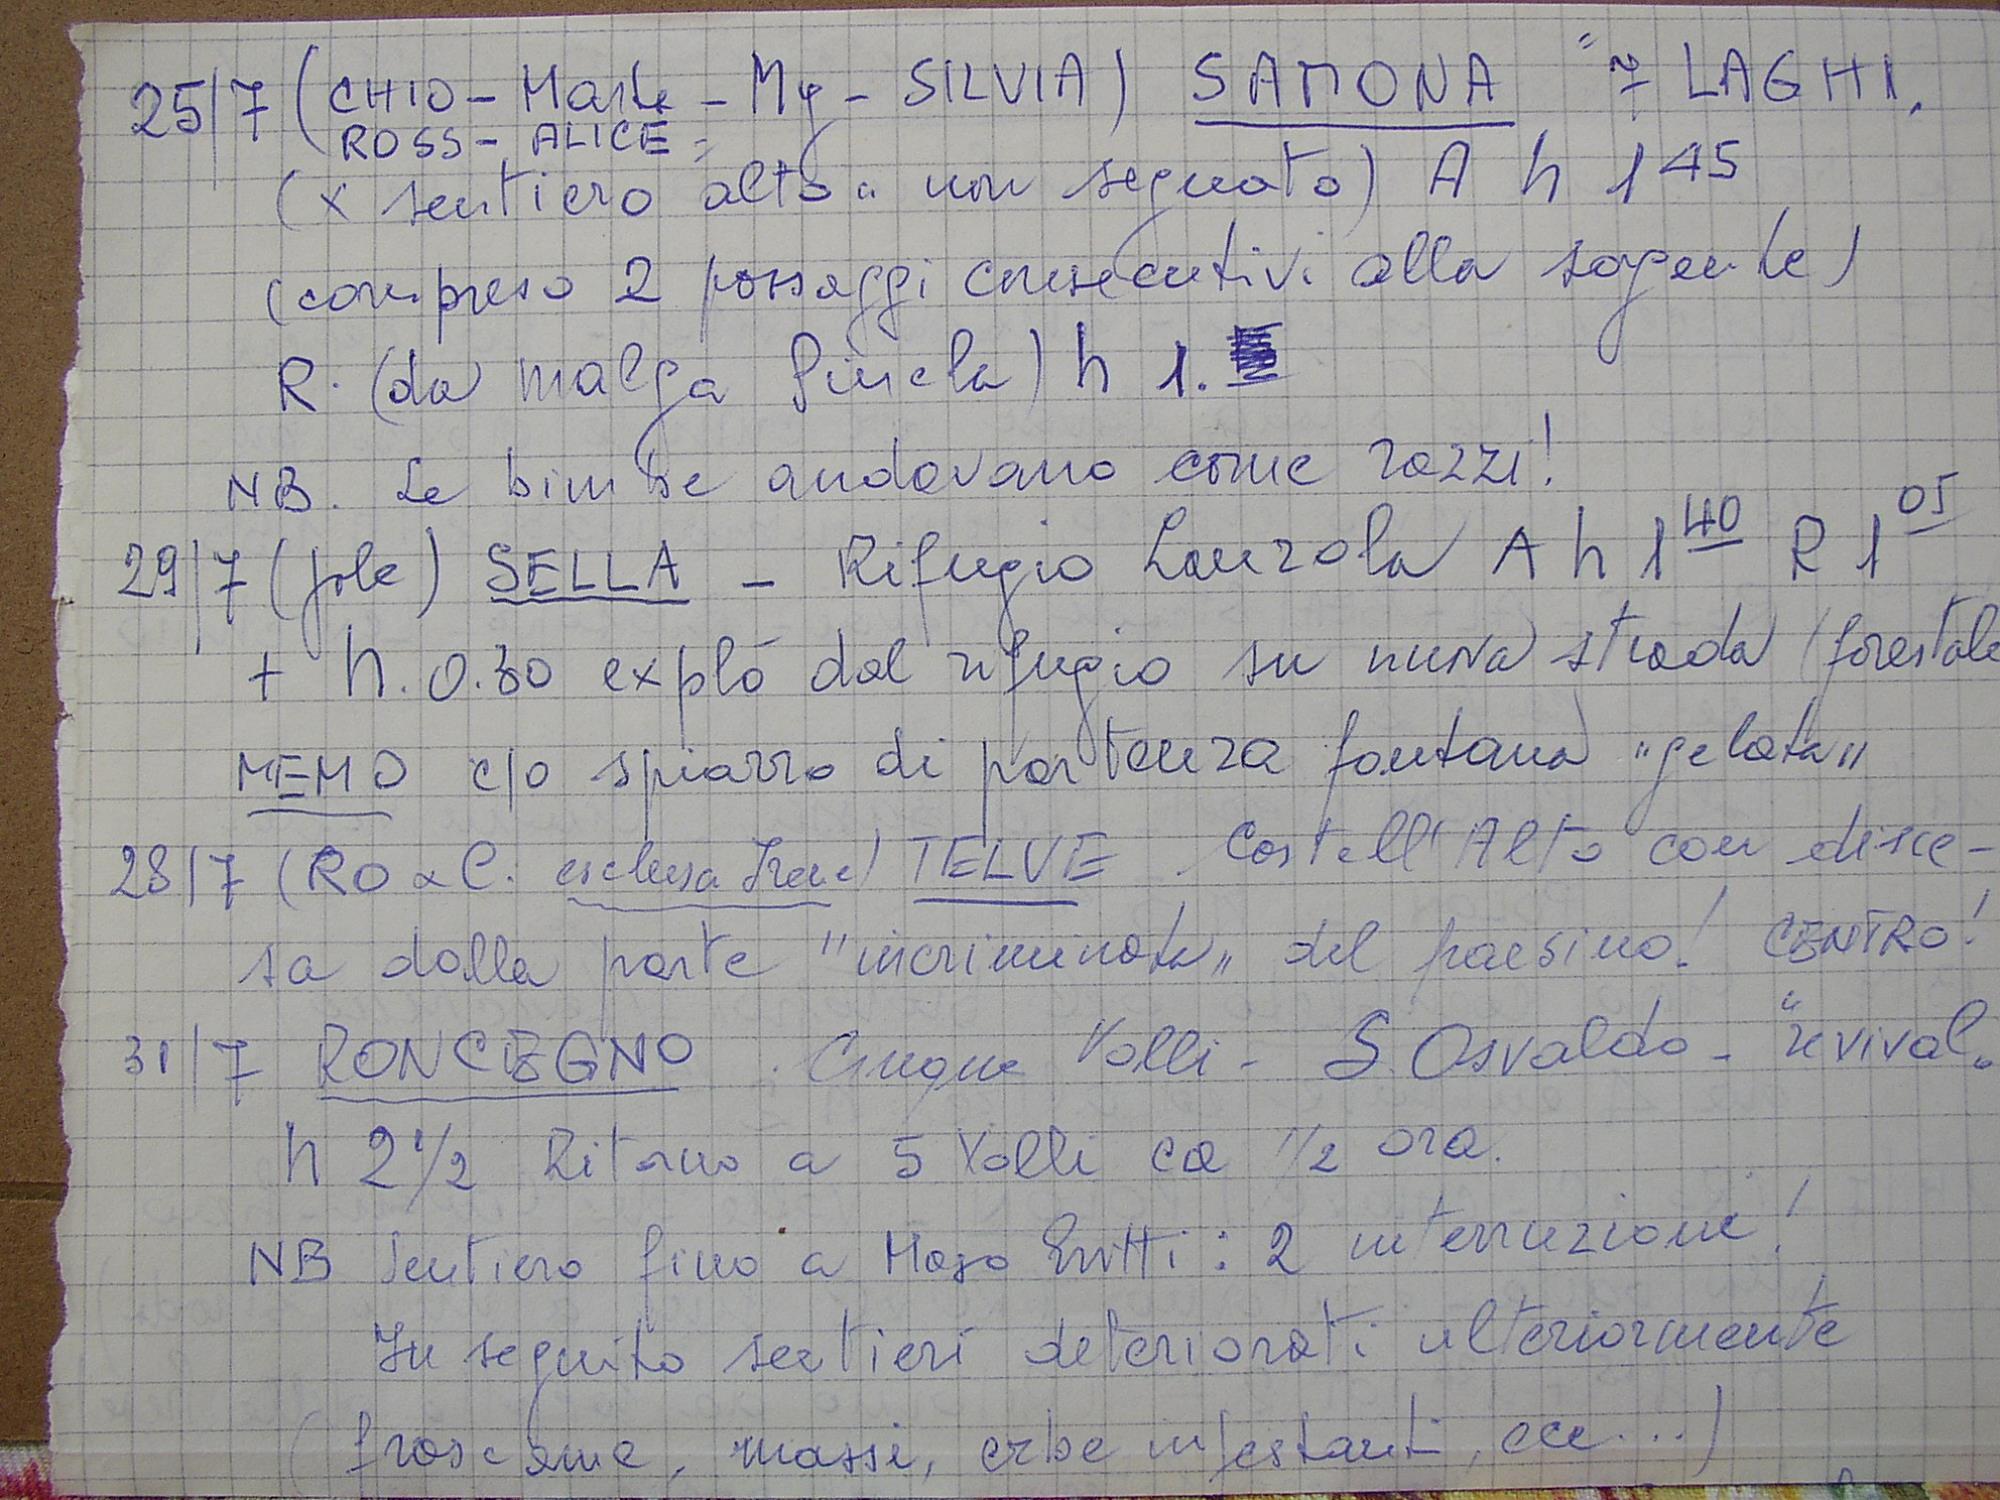 25/7 (CHIO - Marte - My - SILVIA) SAMONA "7 LAGHI"
ROSS - ALICE
(x sentiero alto " non segnato) A h 1 45
(compreso 2 passaggi consecutivi alla sorgente)
R. (da malga) h 1.
NB. Le bimbe andavano come razzi!
29/7 (Jole) SELLA - Rifugio Lanzola A h 1 40 R 1 05
+ h. 0.30 explò dal rifugio su nuova strada (forestale
MEMO c/o spiazzo di partenza fontana "gelata"
28/7 (RO & C. esclusa Irene) TELVE. Castell'Alto con disce-
sa dalla parte "incriminata" del paesino! CENTRO!
31/7 RONCEGNO. Cinque Valli - S. Osvaldo - "revival"
h 2 1/2 Ritorno a 5 Valli ca 1/2 ora.
NB Sentiero fino a Maso : 2 interruzioni!
In seguito sentieri deteriorati ulteriormente
(frascame, massi, erbe infestanti, ecc...)